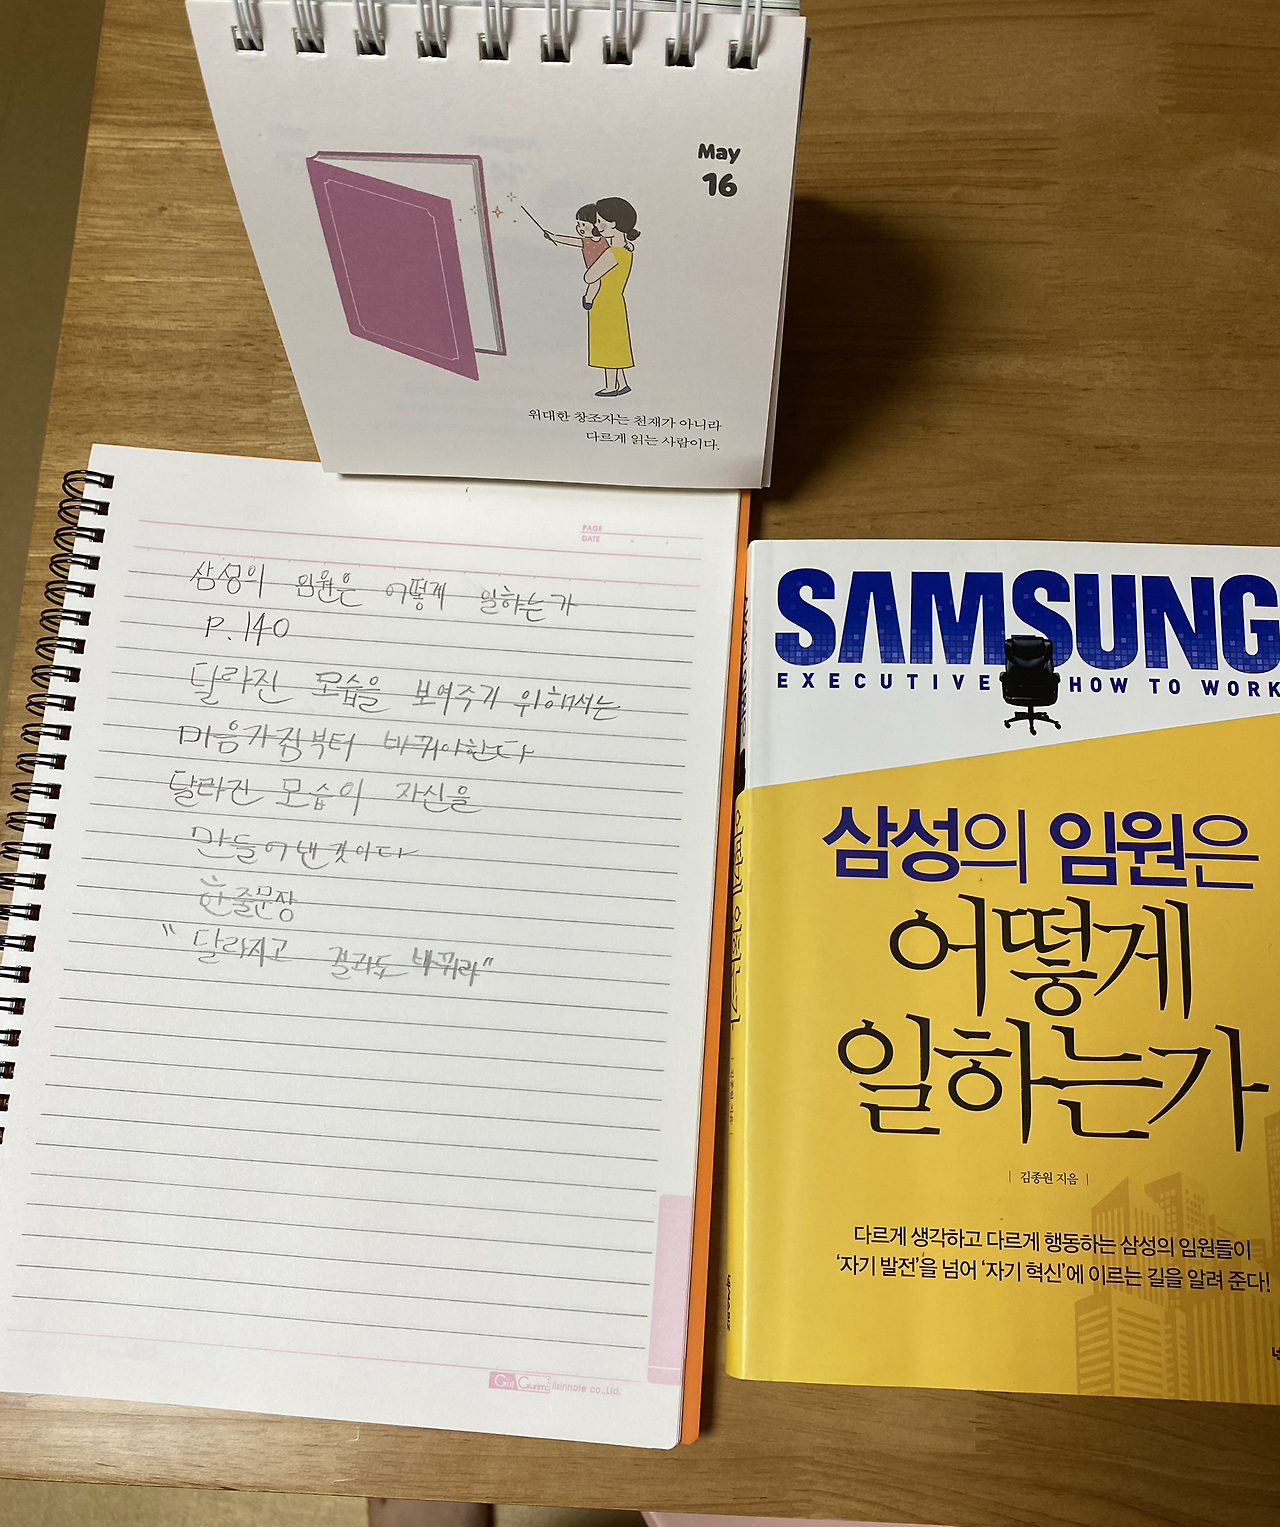 May
16
위대한 창조자는 천재가 아니라
다르게 읽는 사람이다.
PAGE
DATE
삼성의 임원은 어떻게 일하는가
P.140
달라진 모습을 보여주기 위해서는
마음가짐부터 바꿔야한다
달라진 모습이 자신을
만들어낸것이다
한줄문장
"달라지고 결과도 바꿔라"
Gui Gunmi ilsinnote co.,Ltd.
SAMSUNG
EXECUTIVE HOW TO WORK
삼성의 임원은
어떻게
일하는가
김종원 지음
다르게 생각하고 다르게 행동하는 삼성의 임원들이
‘자기 발전’을 넘어 ‘자기 혁신’에 이르는 길을 알려 준다!